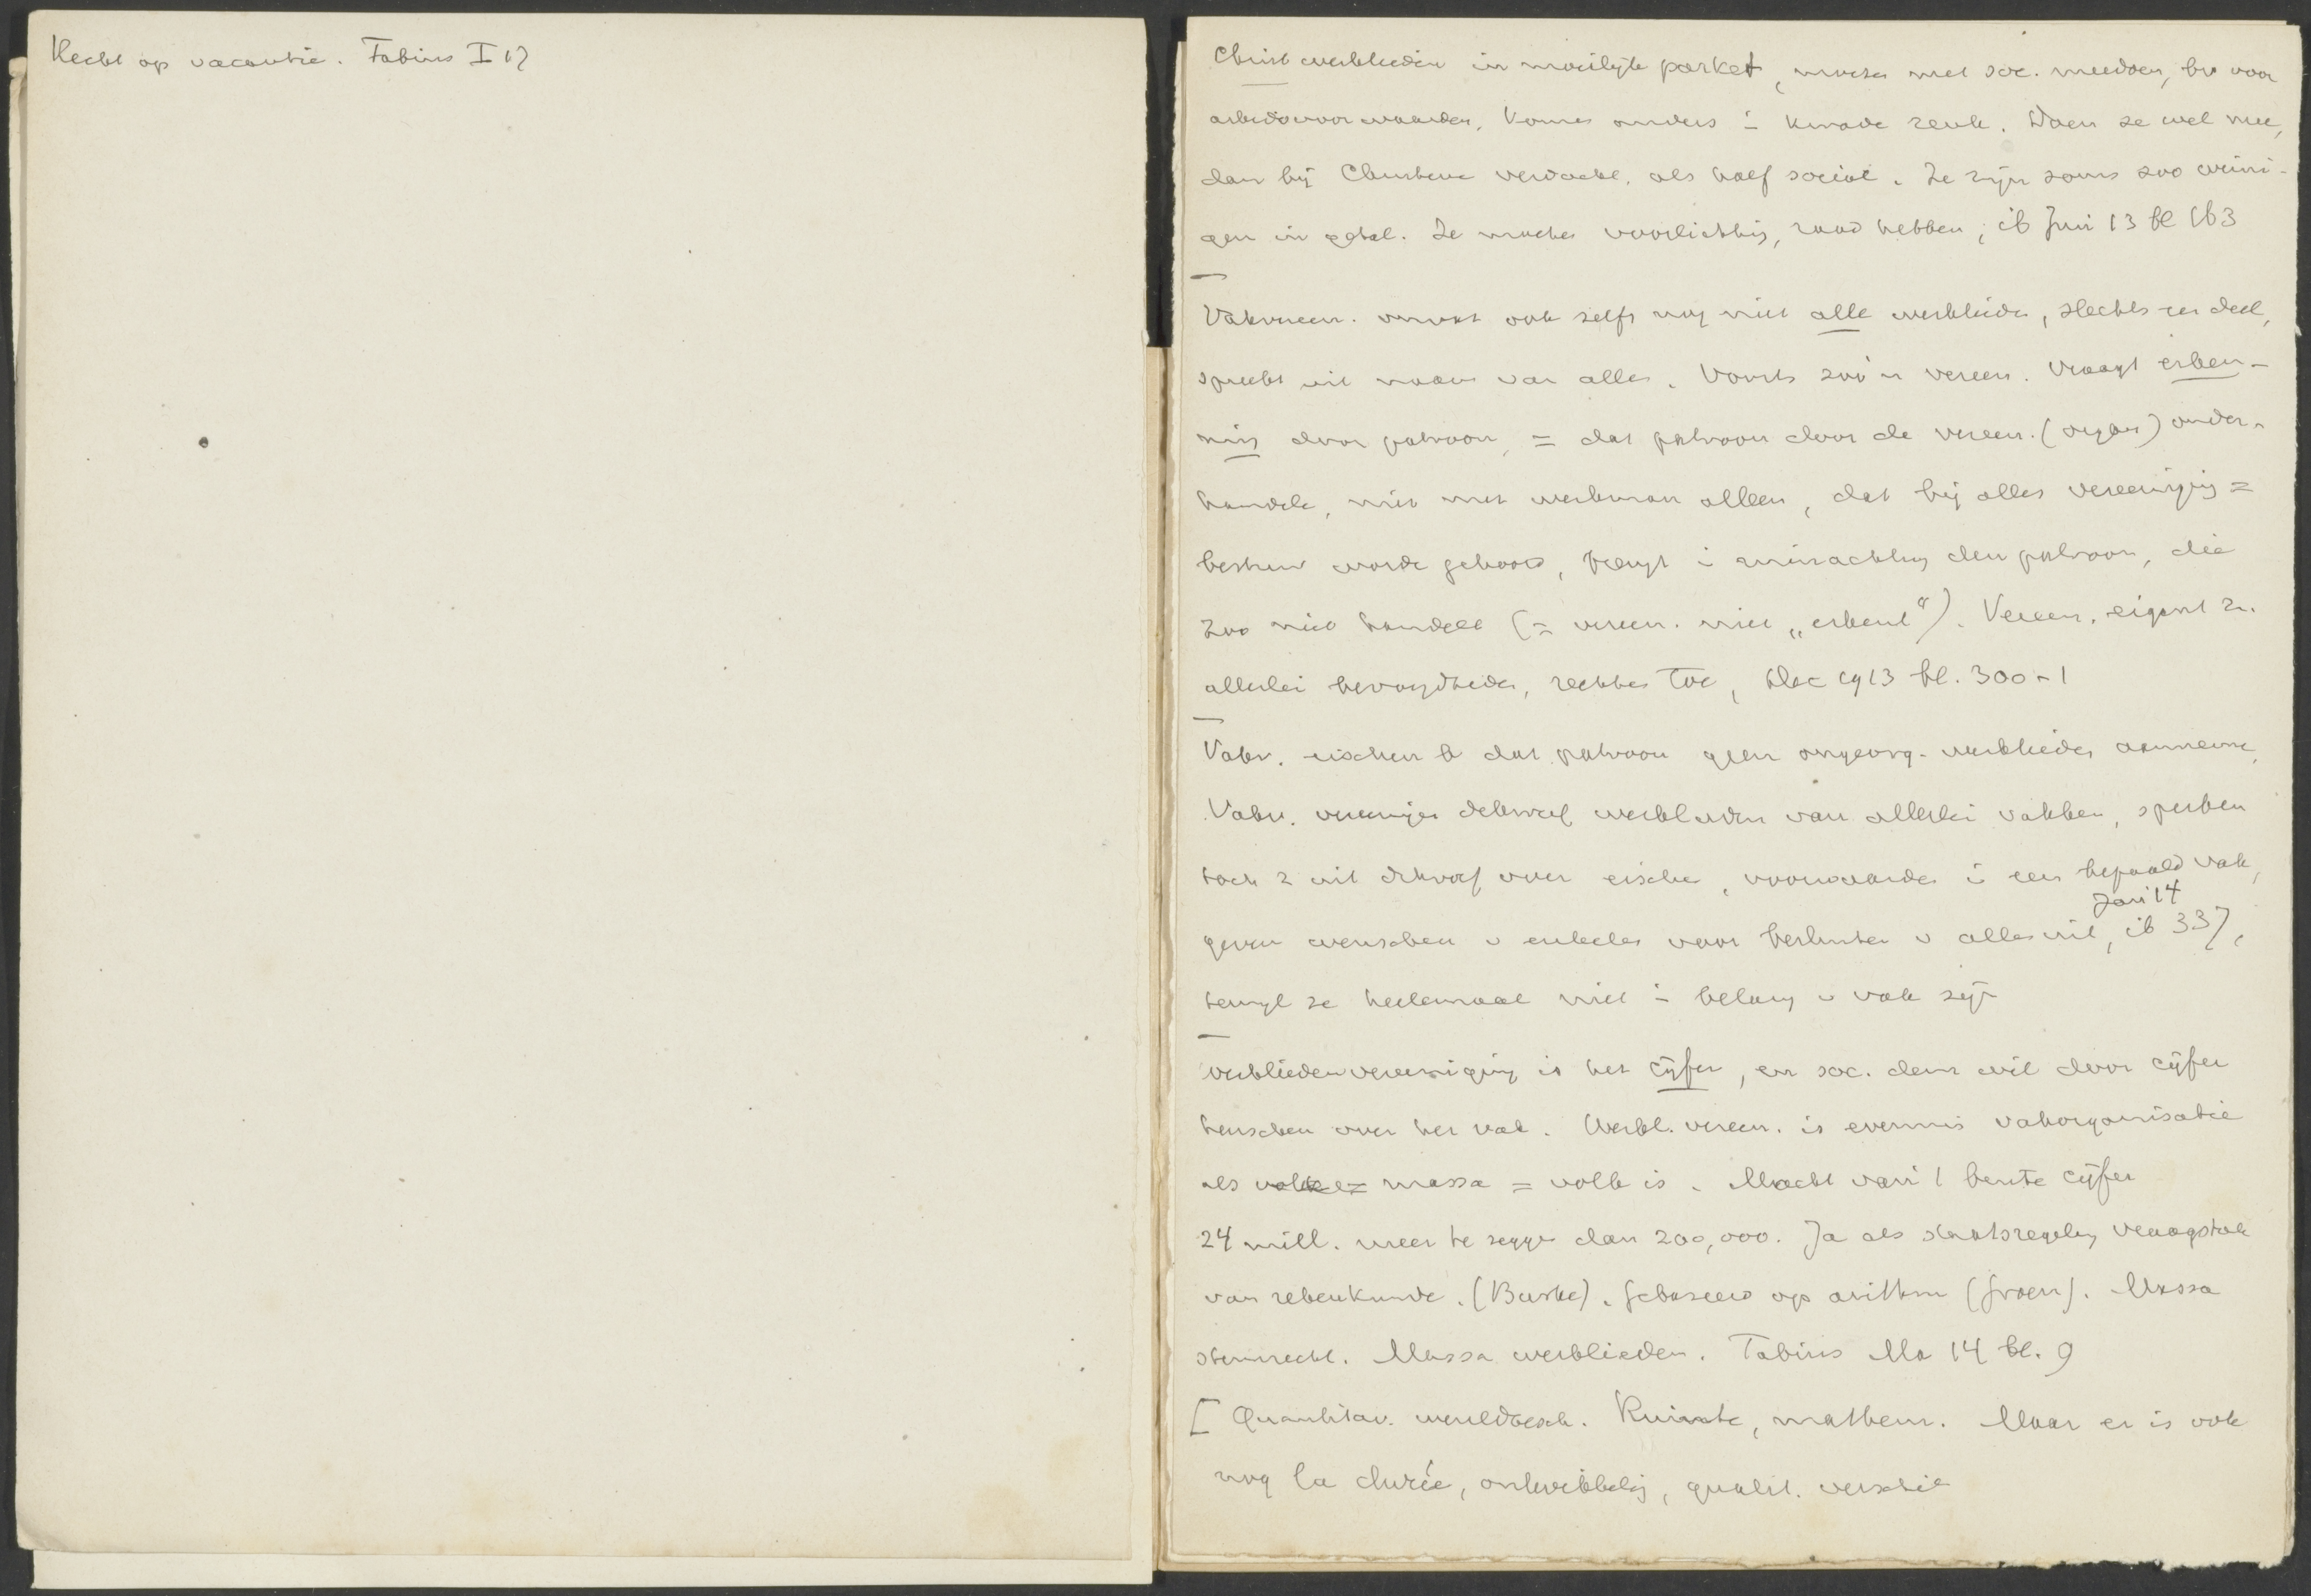 Recht op vacantie. Fabius I 17
Christ werklieden in moeilijk parket, moeten met soc. meedoen, bv voor
arbeidsvoorwaarden, komen anders i kwade reuk. Doen ze wel mee,
dan bij Christenen verdacht, als half sociał. Ze zijn soms zoo weini-
gen in getal. Ze moeten voorlichting, raad hebben, ib Juni 13 bl 163
Vakvereen. omvat ook zelfs nog niet alle werklieden, slechts een deel,
spreekt uit naam van allen. Voorts zoo'n vereen. vraagt erken-
ning door patroon, = dat patroon door de vereen. (organ) onder-
handele, niet met werkman alleen, dat bij alles vereeniging =
bestuur worde gehoord, brengt i minachting den patroon, die
zoo niet handelt (= vereen. niet „erkent"). Vereen. eigent z.
allerlei bevoegdheden, rechten toe, Dec 1913 bl. 300-1
Vakv. eischen b dat patroon geen ongeorg. werklieden aanneme,
Vakv. vereenigen dikwijls werklieden van allerlei vakken, spreken
toch z uit dikwijls over eischen, voorwaarden i een bepaald vak,
Jan 14
geven wenschen v enkelen voor besluiten v allen uit, ib 337,
terwijl ze heelemaal niet i belang v vak zijn
Werkliedenvereeniging is het cijfer, en soc. dem wil door cijfer
heerschen over het vak. Werkl. vereen. is evenmin vakorganisatie
als massa = volk is. Macht van 't bruto cijfer
24 mill. meer te zeggen dan 200,000. Ja als staatsregeling vraagstuk
van rekenkunde. (Burke). Gebaseerd op arithm (Groen). Massa
stemrecht. Massa werklieden. Fabius Ma 14 bl. 9
[ Quantitav. wereldbesch. Ruimte, mathem. Maar er is ook
nog la durée, ontwikkeling, qualit. verschil